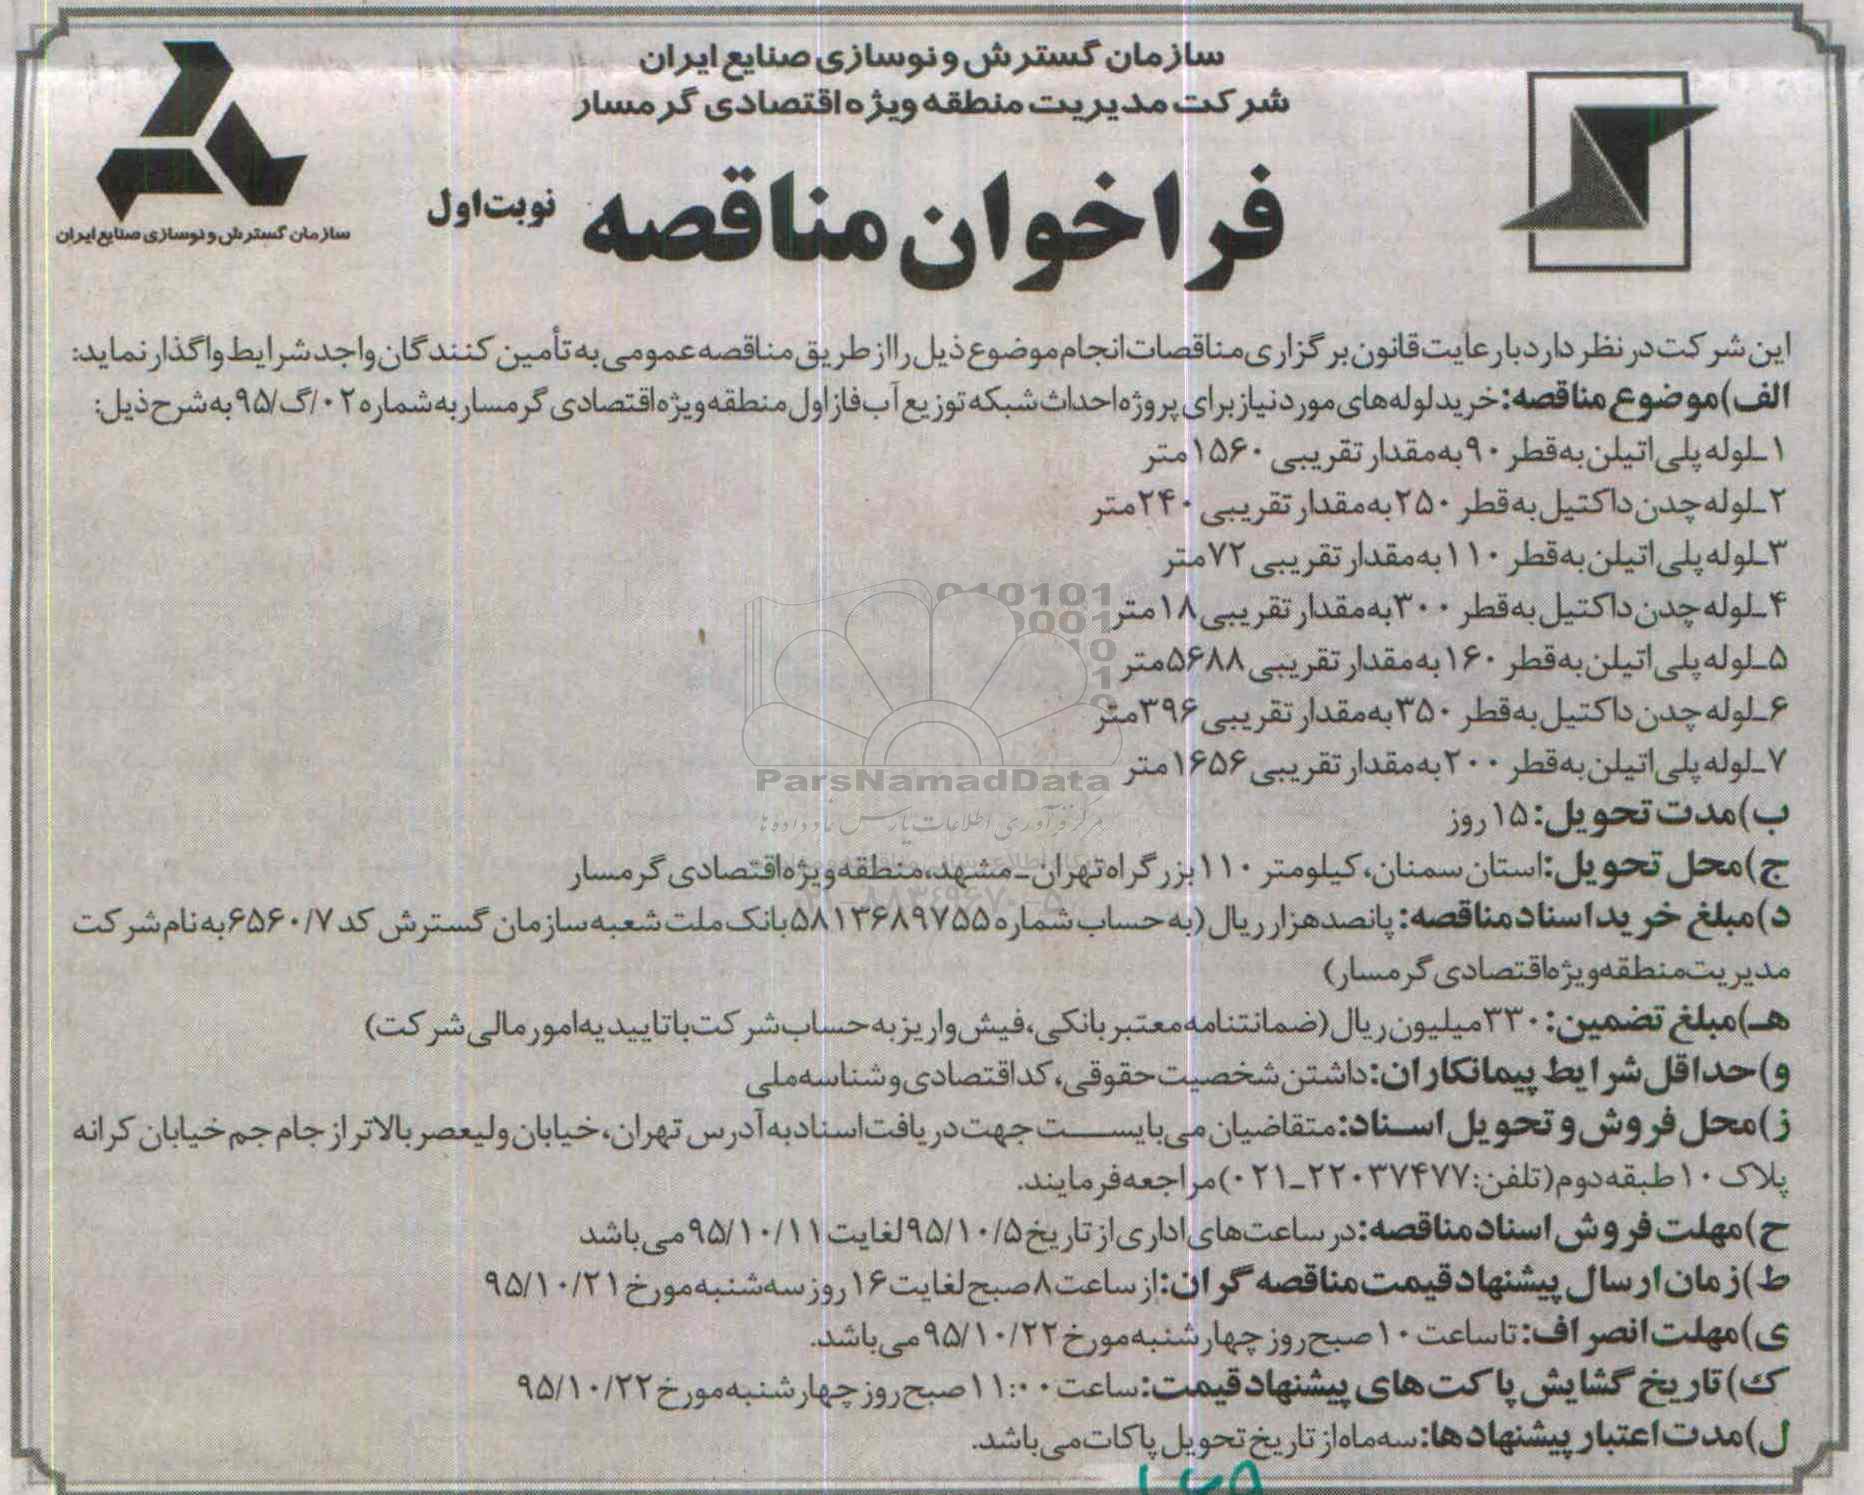 سازمان گسترش و نوسازی صنایع ایران
شرکت مدیریت منطقه ویژه اقتصادی گرمسار
فراخوان مناقصه نوبت اول
سازمان گسترش و نوسازی صنایع ایران
این شرکت در نظر دارد با رعایت قانون برگزاری مناقصات انجام موضوع ذیل را از طریق مناقصه عمومی به تأمین کنندگان واجد شرایط واگذار نماید:
الف) موضوع مناقصه: خرید لوله‌های مورد نیاز برای پروژه احداث شبکه توزیع آب فاز اول منطقه ویژه اقتصادی گرمسار به شماره ۰۲/گ/۹۵ به شرح ذیل:
۱ـ لوله پلی اتیلن به قطر ۹۰ به مقدار تقریبی ۱۵۶۰ متر
۲ـ لوله چدن داکتیل به قطر ۲۵۰ به مقدار تقریبی ۲۴۰ متر
۳ـ لوله پلی اتیلن به قطر ۱۱۰ به مقدار تقریبی ۷۲ متر
۴ـ لوله چدن داکتیل به قطر ۳۰۰ به مقدار تقریبی ۱۸ متر
۵ـ لوله پلی اتیلن به قطر ۱۶۰ به مقدار تقریبی ۵۶۸۸ متر
۶ـ لوله چدن داکتیل به قطر ۳۵۰ به مقدار تقریبی ۳۹۶ متر
۷ـ لوله پلی اتیلن به قطر ۲۰۰ به مقدار تقریبی ۱۶۵۶ متر
ParsNamadData
مرکز فرآوری اطلاعات پارس نماد داده ها
ب) مدت تحویل: ۱۵ روز
ج) محل تحویل: استان سمنان، کیلومتر ۱۱۰ بزرگراه تهران ـ مشهد، منطقه ویژه اقتصادی گرمسار
د) مبلغ خرید اسناد مناقصه: پانصد هزار ریال (به حساب شماره ۵۸۱۳۶۸۹۷۵۵ بانک ملت شعبه سازمان گسترش کد ۶۵۶۰/۷ به نام شرکت
مدیریت منطقه ویژه اقتصادی گرمسار)
هـ) مبلغ تضمین: ۳۳۰ میلیون ریال (ضمانتنامه معتبر بانکی، فیش واریز به حساب شرکت با تاییدیه امور مالی شرکت)
و) حداقل شرایط پیمانکاران: داشتن شخصیت حقوقی، کد اقتصادی و شناسه ملی
ز) محل فروش و تحویل اسناد: متقاضیان می‌بایست جهت دریافت اسناد به آدرس تهران، خیابان ولیعصر بالاتر از جام جم خیابان کرانه
پلاک ۱۰ طبقه دوم (تلفن: ۲۲۰۳۷۴۷۷ـ۰۲۱) مراجعه فرمایند.
ح) مهلت فروش اسناد مناقصه: در ساعت‌های اداری از تاریخ ۹۵/۱۰/۵ لغایت ۹۵/۱۰/۱۱ می‌باشد
ط) زمان ارسال پیشنهاد قیمت مناقصه گران: از ساعت ۸ صبح لغایت ۱۶ روز سه شنبه مورخ ۹۵/۱۰/۲۱
ی) مهلت انصراف: تا ساعت ۱۰ صبح روز چهارشنبه مورخ ۹۵/۱۰/۲۲ می‌باشد.
ک) تاریخ گشایش پاکت‌های پیشنهاد قیمت: ساعت ۱۱:۰۰ صبح روز چهارشنبه مورخ ۹۵/۱۰/۲۲
ل) مدت اعتبار پیشنهادها: سه ماه از تاریخ تحویل پاکات می‌باشد.